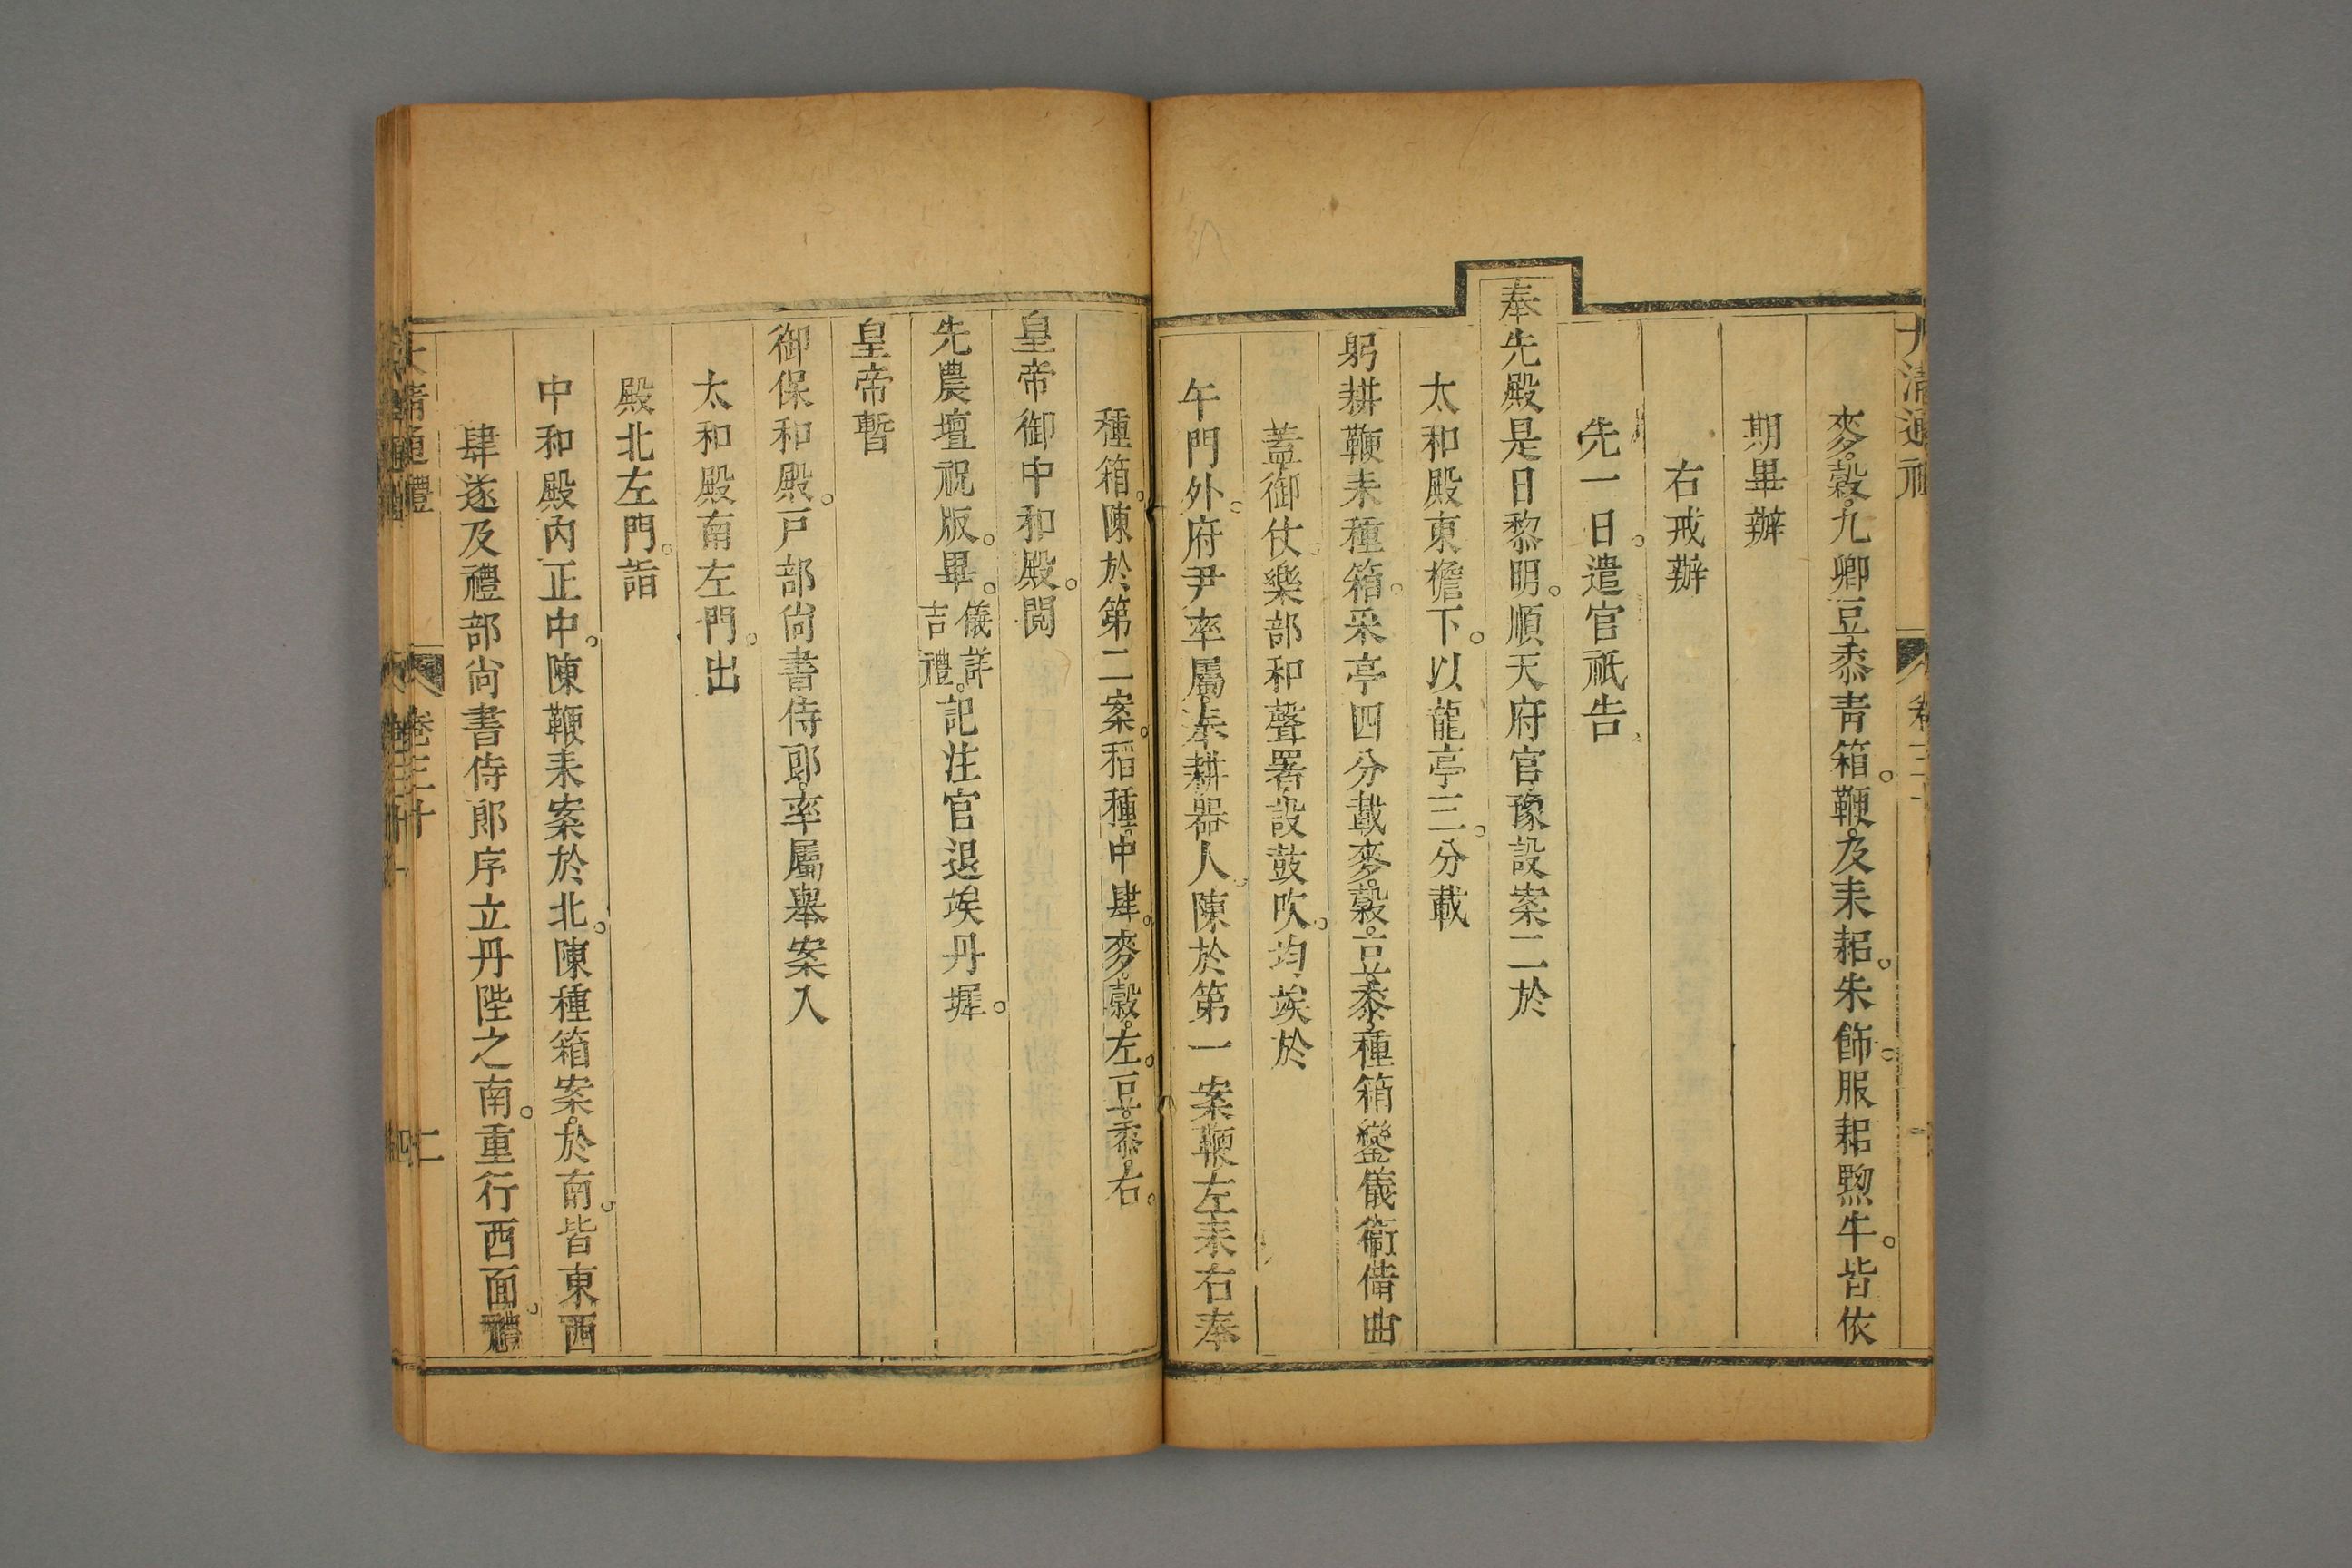 麥。穀。九卿豆黍青箱。鞭。及耒耜。朱飾。服耜黝牛。皆依
期畢辦
右戒辦
先一日。遣官祇告
奉先殿是日黎明。順天府官豫設案二於
太和殿東檐下。以龍亭三。分載
躬耕鞭耒種箱。采亭四分載麥。穀。豆。黍。種箱鑾儀衞僃曲
蓋御仗。樂部和聲署設鼓吹。均竢於
午門外。府尹率屬。奉耕器人。陳於第一案鞭左耒右奉
種箱。陳於第二案。稻種。中肆。麥。穀。左。豆。黍。右。
皇帝御中和殿。閱
先農壇祝版。畢。儀詳吉禮。記注官退竢丹墀。
皇帝暫
御保和殿。戸部尙書侍郎。率屬舉案入
太和殿南左門。出
殿北左門。詣
中和殿內正中。陳鞭耒案於北。陳種箱案。於南。皆東西
肆遂及禮部尙書侍郎序立丹陛之南。重行西面。禮
大清通禮
卷三十
二